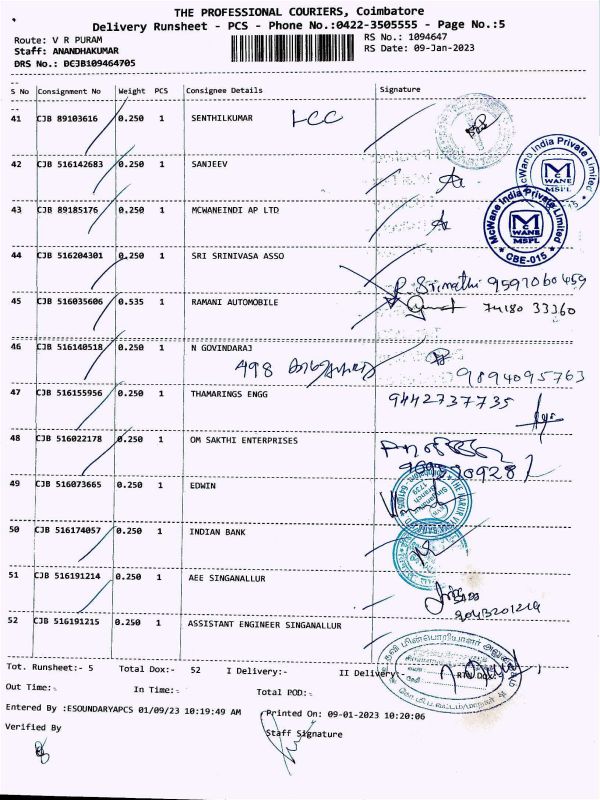 THE PROFESSIONAL COURIERS, Coimbatore
Delivery Runsheet - PCS - Phone No.:0422-3505555 - Page No.:5
Route: V R PURAM RS No.: 1094647
Staff: ANANDHAKUMAR RS Date: 09-Jan-2023
DRS No.: DCJB109464705
S No Consignment No Weight PCS Consignee Details Signature
41 CJB 89103616 0.250 1 SENTHILKUMAR
42 CJB 516142683 0.250 1 SANJEEV
McWane India Private Limited
McWANE
MSPL
43 CJB 89185176 0.250 1 MCWANEINDI AP LTD
McWane India Private Limited
McWANE
MSPL
CBE-015
44 CJB 516204301 0.250 1 SRI SRINIVASA ASSO
P. Srimathi 9597060459
45 CJB 516035606 0.535 1 RAMANI AUTOMOBILE
74180 33360
46 CJB 516140518 0.250 1 N GOVINDARAJ
498
9894095763
47 CJB 516155956 0.250 1 THAMARINGS ENGG 9442737735
48 CJB 516022178 0.250 1 OM SAKTHI ENTERPRISES
49 CJB 516073665 0.250 1 EDWIN
50 CJB 516174057 0.250 1 INDIAN BANK
51 CJB 516191214 0.250 1 AEE SINGANALLUR
52 CJB 516191215 0.250 1 ASSISTANT ENGINEER SINGANALLUR
Tot. Runsheet:- 5 Total Dox:- 52 I Delivery:- II Delivery:- RTN Dox:
Out Time:- In Time:- Total POD:-
Entered By :ESOUNDARYAPCS 01/09/23 10:19:49 AM Printed On: 09-01-2023 10:20:06
Verified By Staff Signature